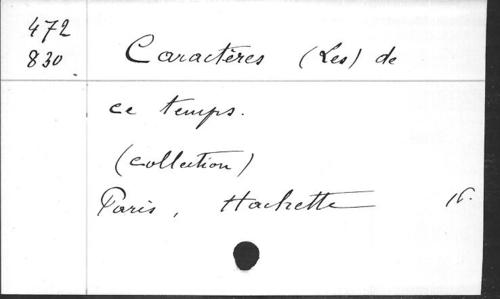 472
830
Caractères (Les) de
ce temps.
(collection)
Paris, Hachette 16.